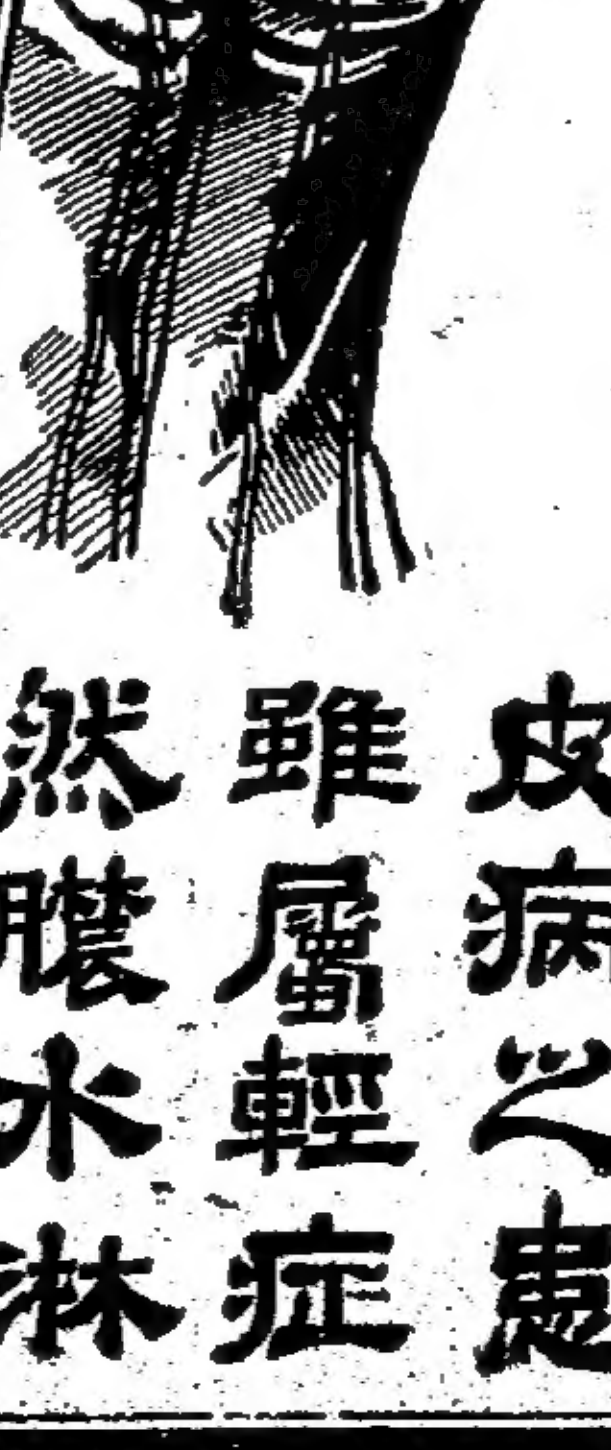 皮病之患
雖屬輕症
然膿水淋